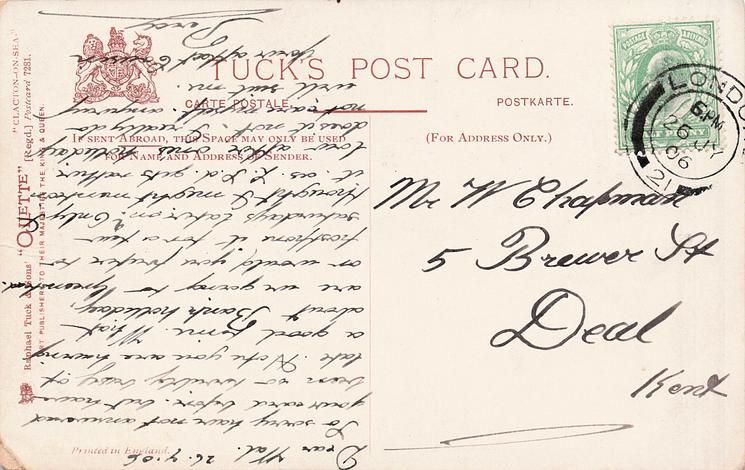 TUCK'S POST CARD.
CARTE POSTALE
POSTKARTE.
IF SENT ABROAD, THIS SPACE MAY ONLY BE USED
FOR NAME AND ADDRESS OF SENDER.
(FOR ADDRESS ONLY.)
Raphael Tuck & Sons' "OILETTE" [Regd.] Postcard 7281. "CLACTON-ON-SEA"
ART PUBLISHERS TO THEIR MAJESTIES THE KING & QUEEN.
Printed in England.
POSTAGE & REVENUE
LONDON
6 PM
26 JY
06
21
Mr W Chapman
5 Brewer St
Deal
Kent
Dear Wal. 26.7.06
So sorry have not answered
your card before. but have
been so terribly busy of
late. Note you are having
a good time. What
about Bank holiday,
are we going to
or would you prefer to
postpone it for a few
Saturdays later on? Only
thought I might mention
it. as L.d gets rather
low after the holiday
does it not. I really do
not care myself. anyway
will suit me.
Your affect Cousin
Percy